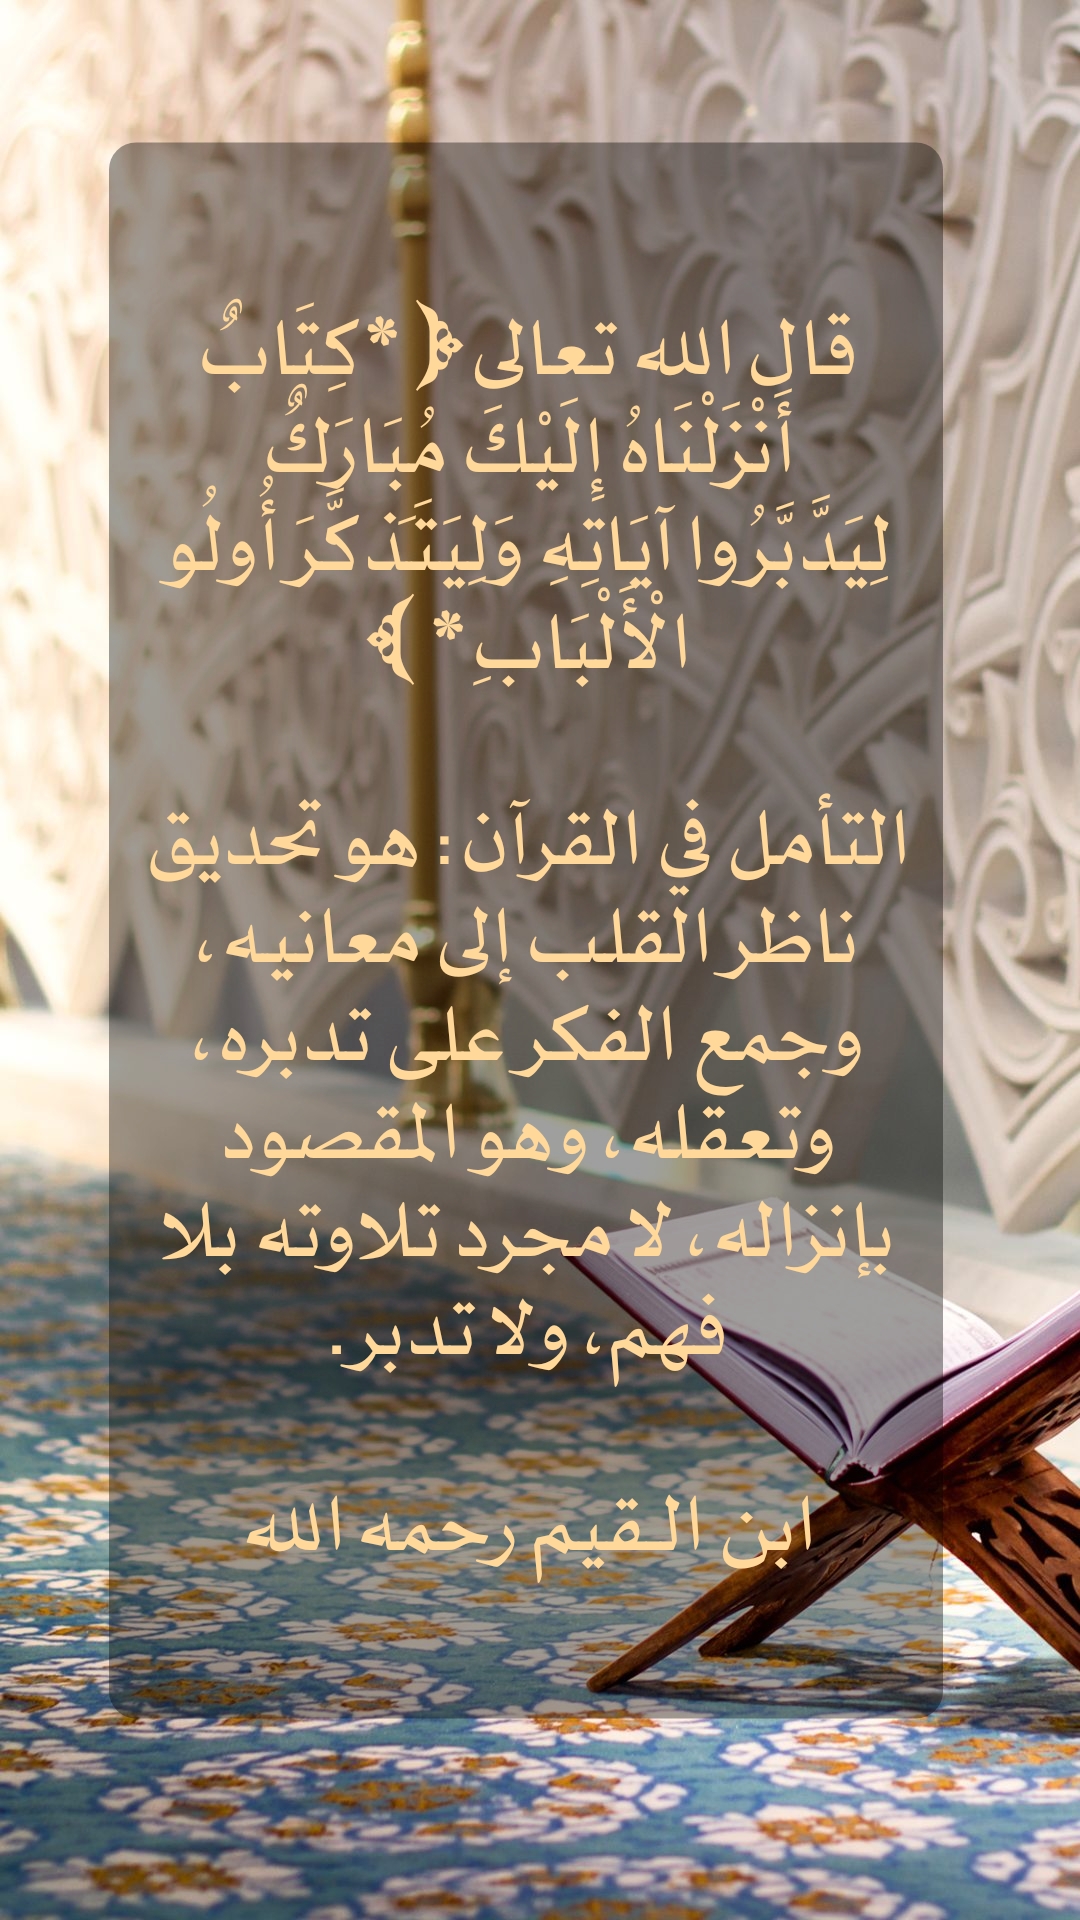 قال الله تعالى ﴿ *كِتَابٌ
أَنْزَلْنَاهُ إِلَيْكَ مُبَارَكٌ
لِيَدَّبَّرُوا آيَاتِهِ وَلِيَتَذكَّرَ أُولُو
الْأَلْبَابِ* ﴾
التأمل في القرآن: هو تحديق
ناظر القلب إلى معانيه،
وجمع الفكر على تدبره،
وتعقله، وهو المقصود
بإنزاله، لا مجرد تلاوته بلا
فهم، ولا تدبر.
ابن القيم رحمه الله